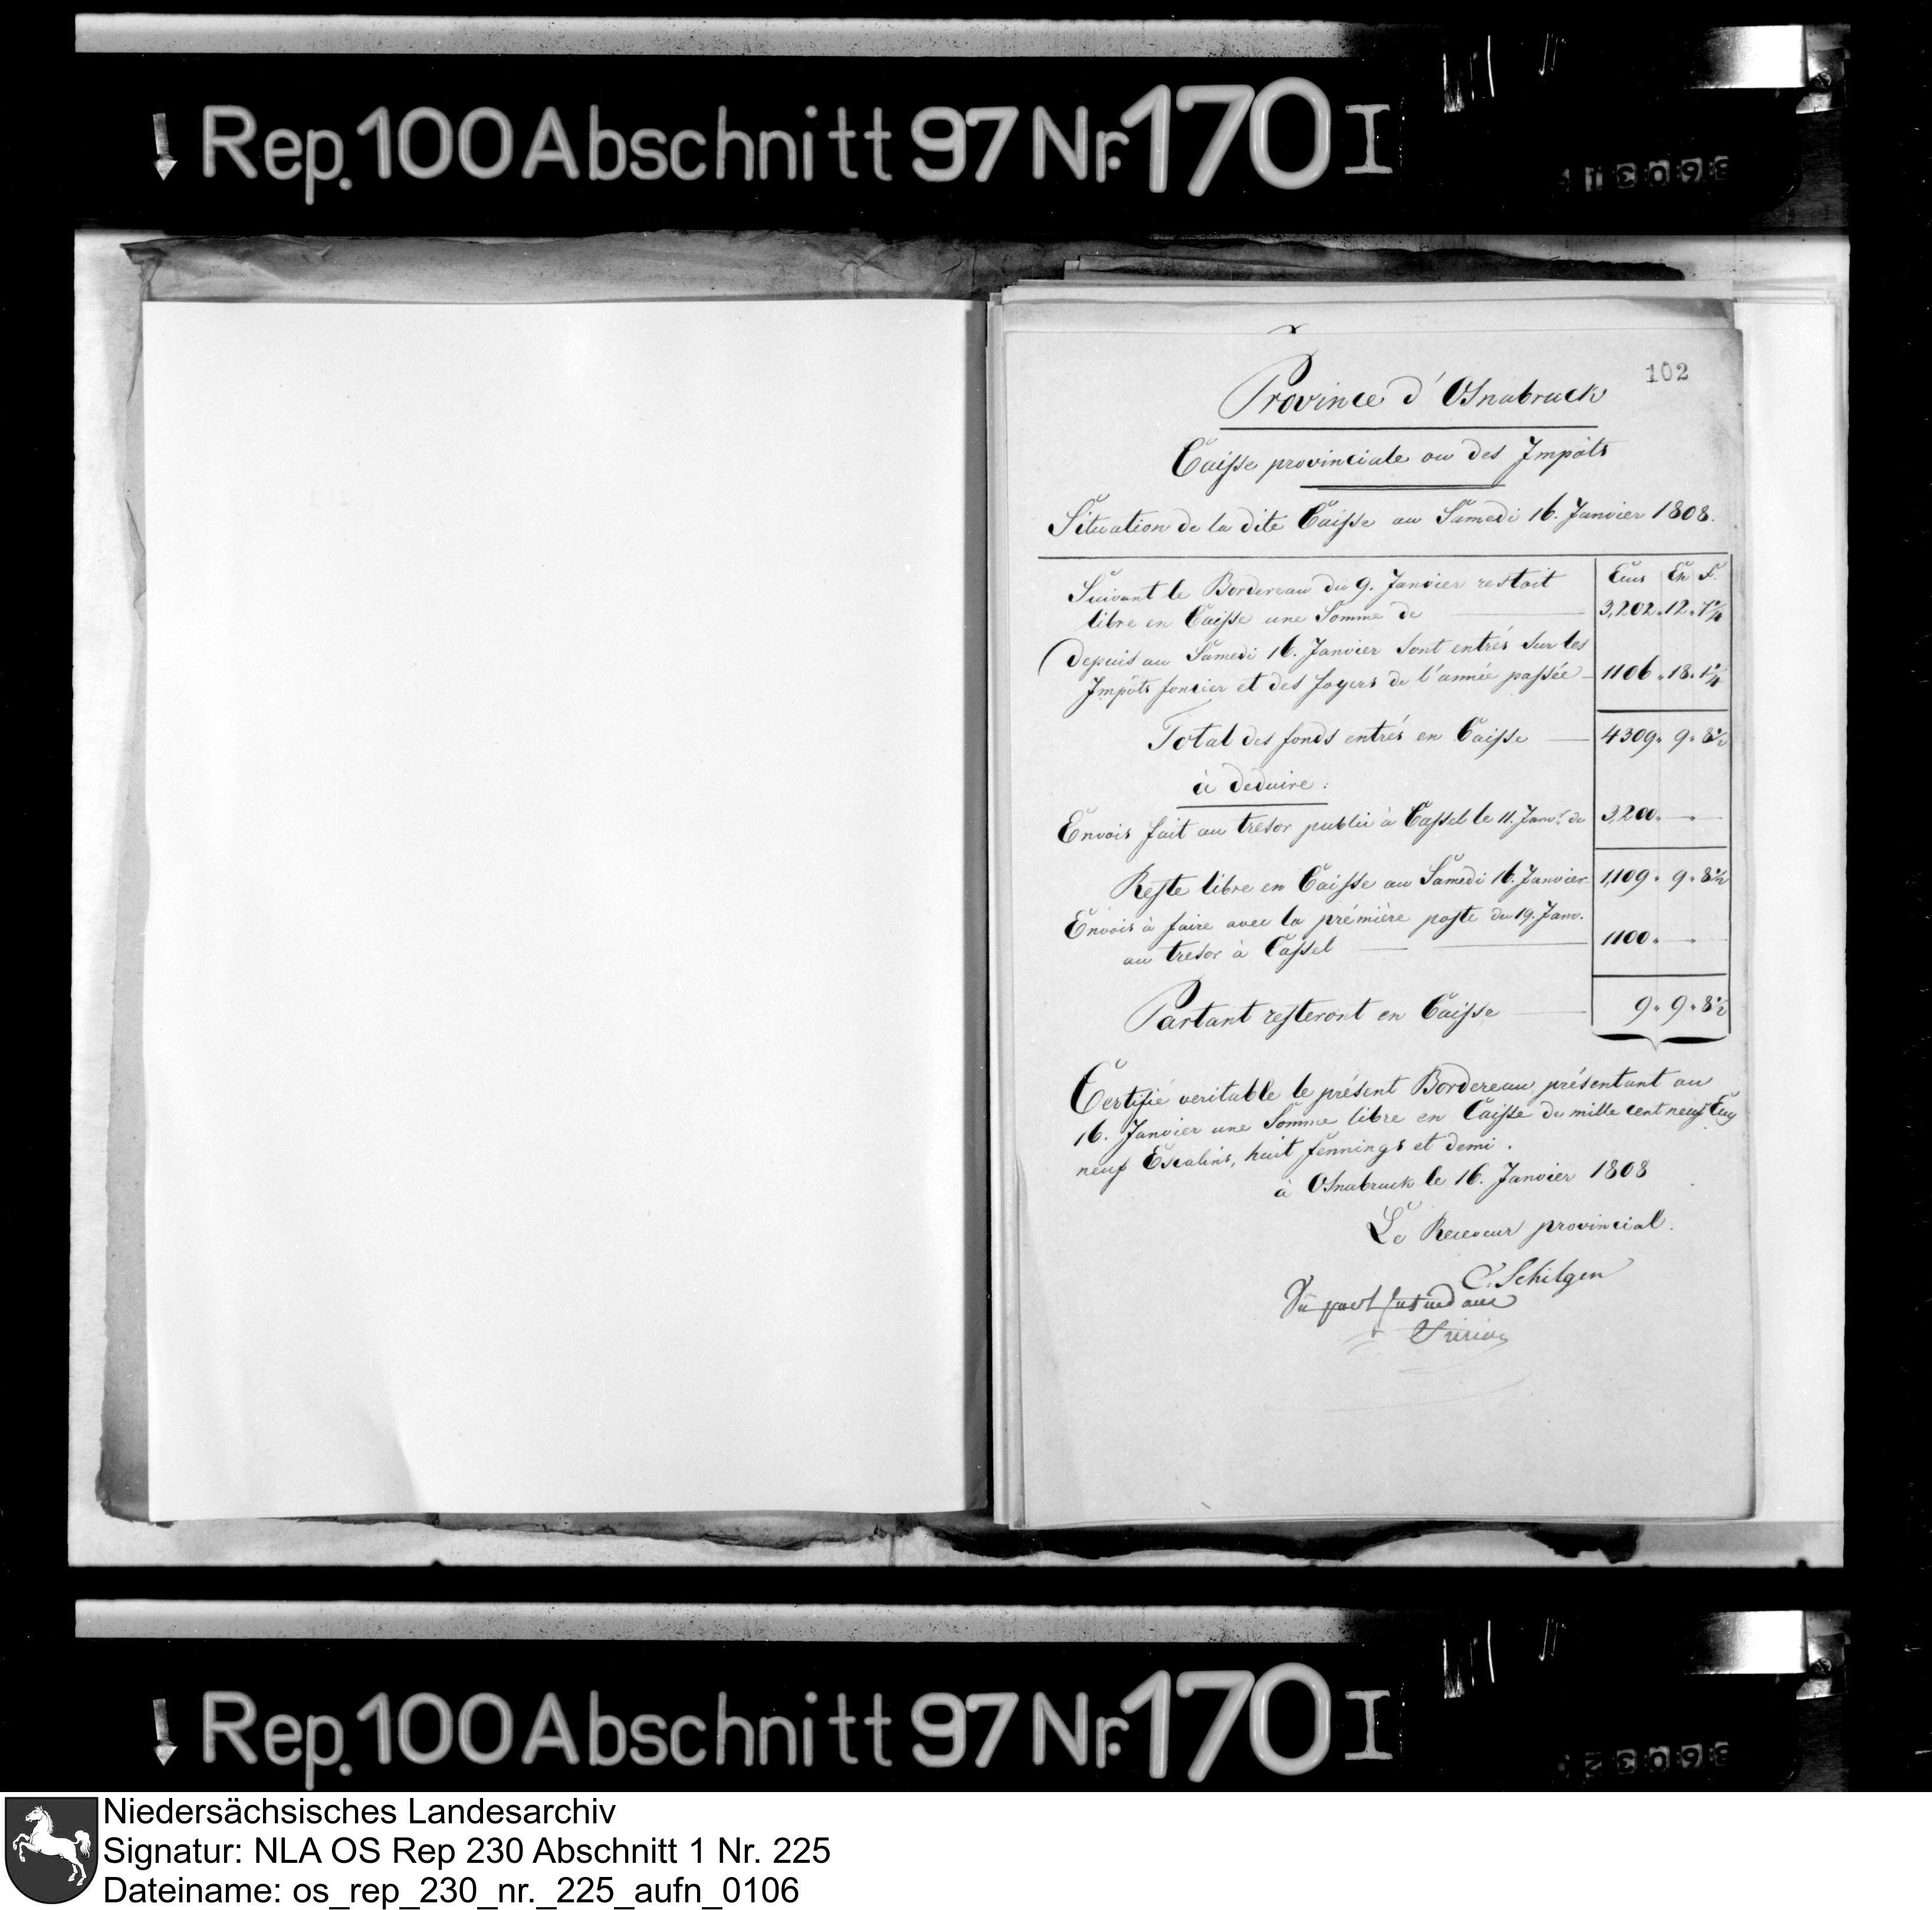 Rep. 100 Abschnitt 97 Nr. 170 I
102
Province d'Osnabruck
Caisse provinciale ou des Impôts
Situation de la dite Caisse au Samedi 16. Janvier 1808.
Ecus
Suivant le Bordereau du 9. Janvier restoit
libre en Caisse une Somme de 3,202. 12. 7¼
depuis au Samedi 16. Janvier sont entrés sur les
Impôts foncier et des foyers de l'année passée 1106. 18. 1¼
Total des fonds entrés en Caisse 4309. 9. 8½
à deduire:
Envois fait au tresor public à Cassel le 11. Janvr. de 3,200. - . -
Reste libre en Caisse au Samedi 16. Janvier 1,109. 9. 8½
Envois à faire avec la prémière poste du 19. Janv.
au tresor à Cassel 1100. - . -
Partant resteront en Caisse 9. 9. 8½
Certifié veritable le présent Bordereau, présentant au
16. Janvier une Somme libre en Caisse de mille cent neuf Ecus
neuf Escalins, huit fennings et demi.
à Osnabruck le 16. Janvier 1808
Le Receveur provincial.
C. Schilgen
Rep. 100 Abschnitt 97 Nr. 170 I
Niedersächsisches Landesarchiv
Signatur: NLA OS Rep 230 Abschnitt 1 Nr. 225
Dateiname: os_rep_230_nr._225_aufn_0106